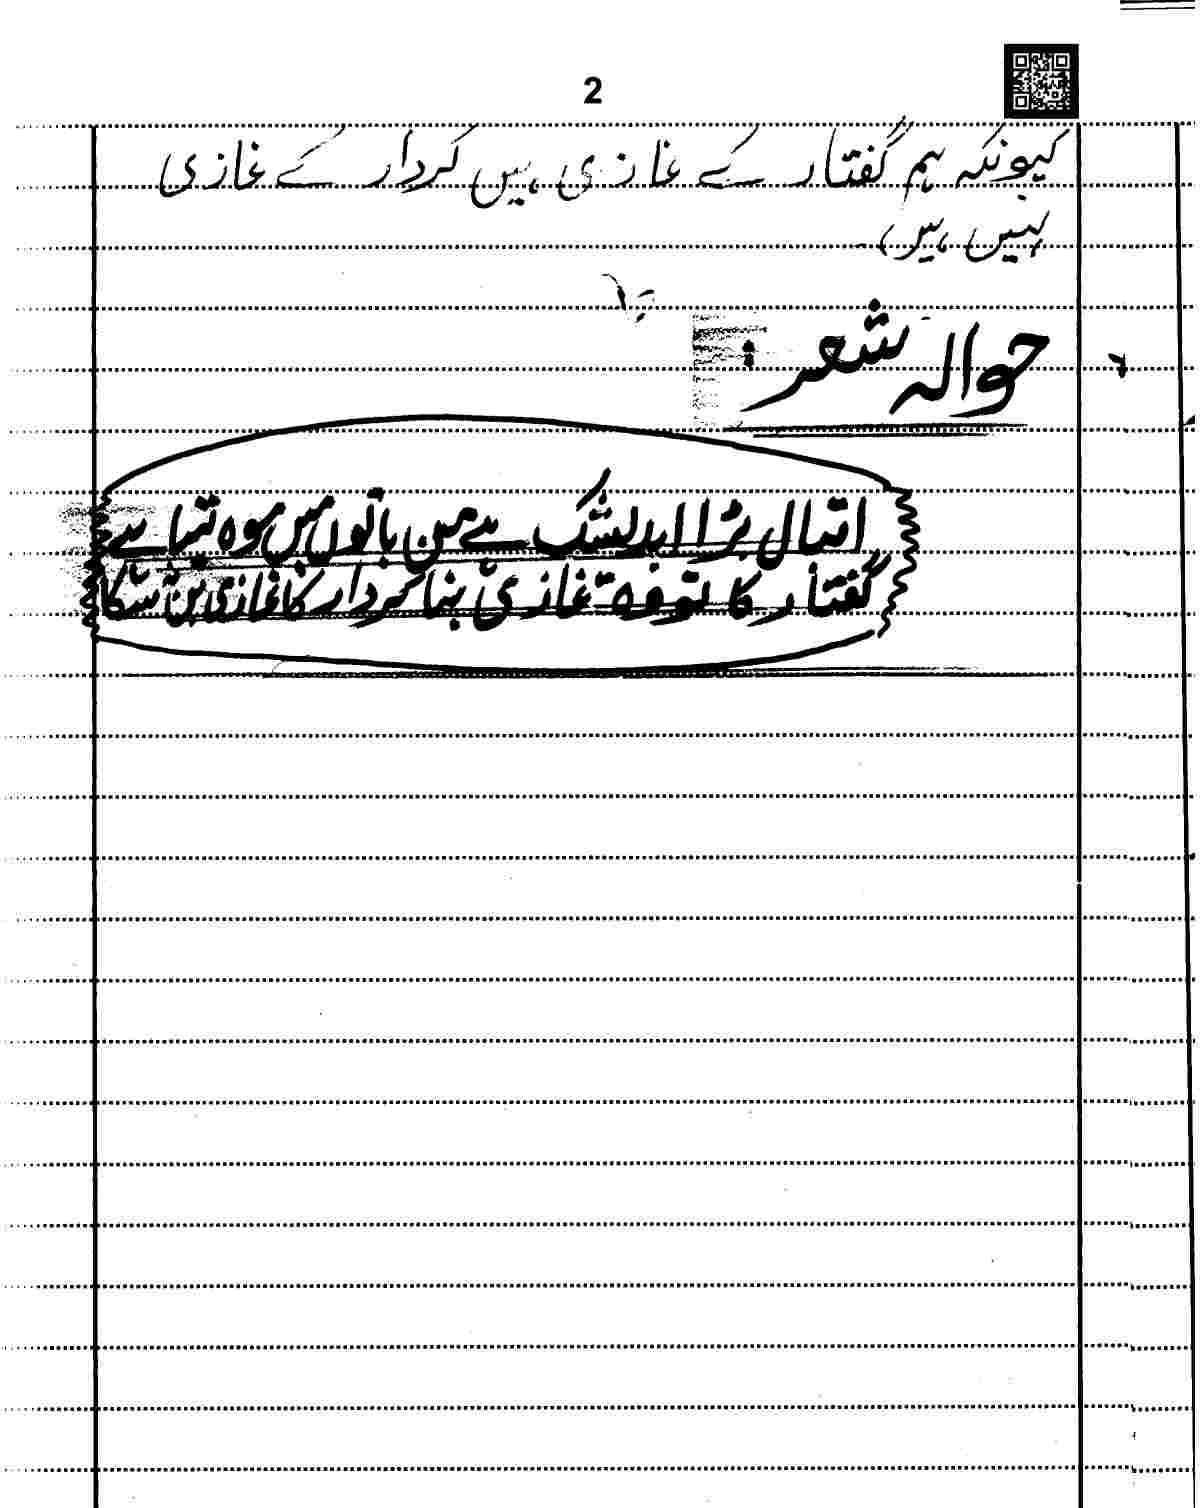 2
کیونکہ ہم گفتار کے غازی ہیں کردار کے غازی
نہیں ہیں۔
حوالہ شعر :
اقبال بڑا اپدیشک ہے من باتوں میں موہ لیتا ہے
گفتار کا تو وہ غازی بنا کردار کا غازی بن نہ سکا